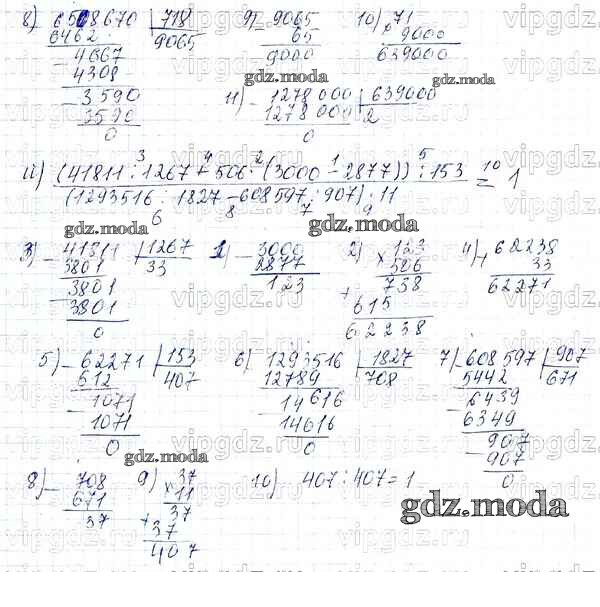 8) 6508670 | 718   9) 9065   10) 71
6462   9065   - 65   × 9000
- 4667   9000   639000
4308
- 3590   11) - 1278000 | 639000
3590   1278000   2
0   0
gdz.moda
gdz.moda
gdz.moda
(41811 : 1267 + 506 · (3000 - 2877)) : 153 = 1
(1293516 : 1827 - 608597 : 907) · 11
gdz.moda
gdz.moda
3) - 41811 | 1267   1) - 3000   2) × 123   4) + 62238
3801   33   2877   506   33
- 3801   123   + 738   62271
3801   615
0   62238
5) - 62271 | 153   6) 1293516 | 1827   7) - 608597 | 907
612   407   12789   708   5442   671
- 1071   14616   - 6439
1071   14616   6349
0   0   - 907
907
0
gdz.moda
gdz.moda
8) - 708   9) × 37   10) 407 : 407 = 1
671   11
37   + 37
37
407
gdz.moda
vipgdz.ru